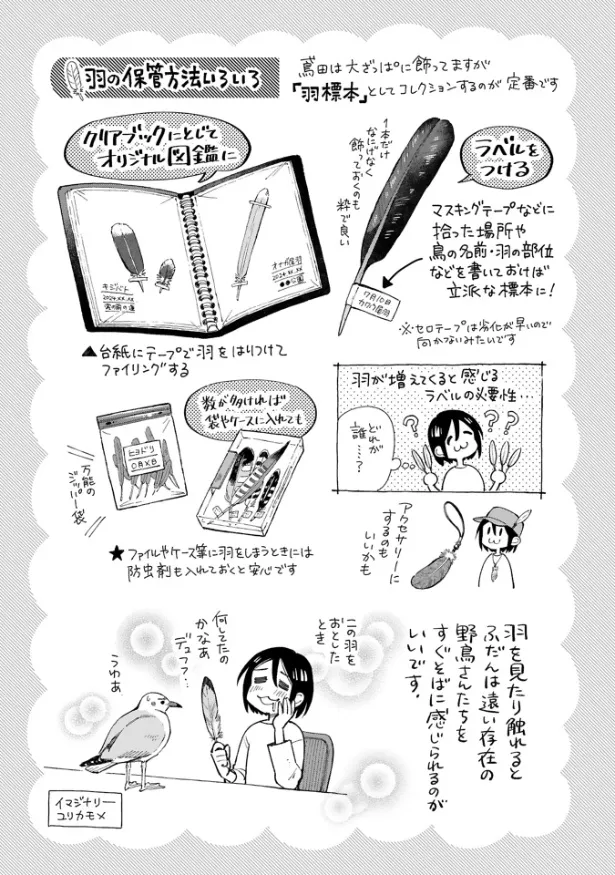 羽の保管方法いろいろ
鳶田は大ざっぱに飾ってますが
「羽標本」としてコレクションするのが定番です
クリアブックにとじて
オリジナル図鑑に
キジバト
2024.XX.XX
オナガ尾羽
2024.XX.XX
●●公園
▲台紙にテープで羽をはりつけて
ファイリングする
1本だけ
なにげなく
飾っておくのも
粋で良い
ラベルを
つける
マスキングテープなどに
拾った場所や
鳥の名前・羽の部位
などを書いておけば
立派な標本に!
※セロテープは劣化が早いので
向かないみたいです
数が多ければ
袋やケースに入れても
ヒヨドリ
○月×日
万能の
ジッパー袋
★ファイルやケース等に羽をしまうときには
防虫剤も入れておくと安心です
羽が増えてくると感じる
ラベルの必要性…
どれが
誰……?
???
アクセサリーに
するのも
いいかも
羽を見たり触れると
ふだんは遠い存在の
野鳥さんたちを
すぐそばに感じられるのが
いいです。
この羽を
おとした
とき
何してたの
かなあ
デュフフ…
うわあ
イマジナリー
ユリカモメ